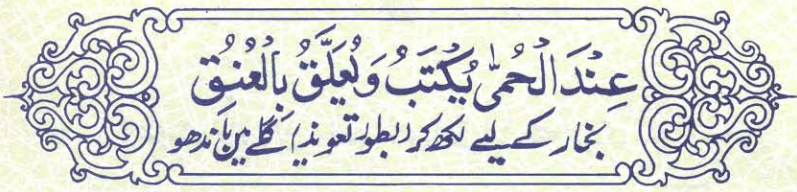 عِنْدَ الْحُمّٰى يُكْتَبُ وَيُعَلَّقُ بِالْعُنُقِ
بخار کے لیے لکھ کر (بطور تعویذ) گلے میں باندھو